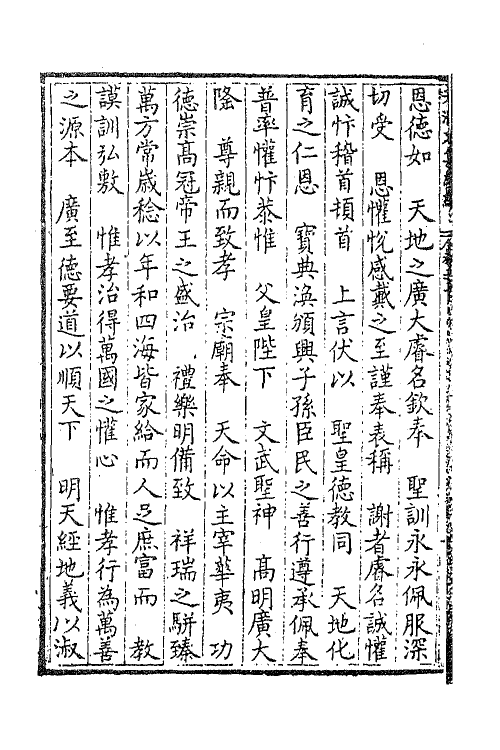 恩徳如　天地之廣大睿名欽奉　聖訓永永佩服深
切受　恩懽悅感戴之至謹奉表稱　謝者睿名誠懽
誠忭稽首頓首　上言伏以　聖皇德教同　天地化
育之仁恩　寶典渙頒興子孫臣民之善行遵承佩奉
普率懽忭恭惟　父皇陛下　文武聖神　髙明廣大
隆　尊親而致孝　宗廟奉　天命以主宰華夷　功
徳崇髙冠帝王之盛治　禮樂明備致　祥瑞之駢臻
萬方常歲稔以年和四海皆家給而人足庶富而　教
謨訓弘敷　惟孝治得萬國之懽心　惟孝行為萬善
之源本　廣至徳要道以順天下　明天經地義以淑